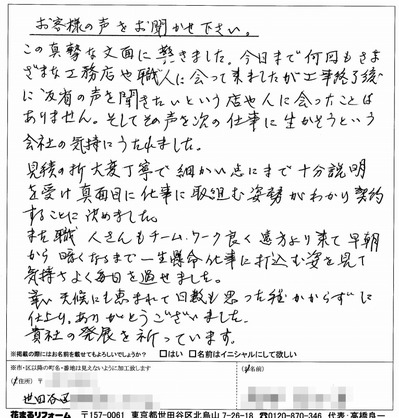 お客様の声をお聞かせ下さい。
この真摯な文面に驚きました。今日まで何回もさま
ざまな工務店や職人に会って来ましたが工事終了後
に客の声を聞きたいという店や人に会ったことは
ありません。そしてその声を次の仕事に生かそうという
会社の気持にうたれました。
見積の折大変丁寧で細かい点にまで十分説明
を受け真面目に仕事に取組む姿勢がわかり契約
することに決めました。
また職人さんもチームワーク良く遠方より来て早朝
から暗くなるまで一生懸命仕事に打込む姿を見て
気持よく毎日を過せました。
幸い天候にも恵まれて日数も思った程かからずに
仕上り、ありがとうございました。
貴社の発展を祈っています。
※掲載の際にはお名前を載せてもよろしいでしょうか? □はい □名前はイニシャルにして欲しい
※市・区以降の町名・番地は見えないように加工致します
(ご住所) 〒
(お名前)
世田谷区
花まるリフォーム 〒157-0061 東京都世田谷区北烏山7-26-18 ☎0120-870-346 代表:高橋良一